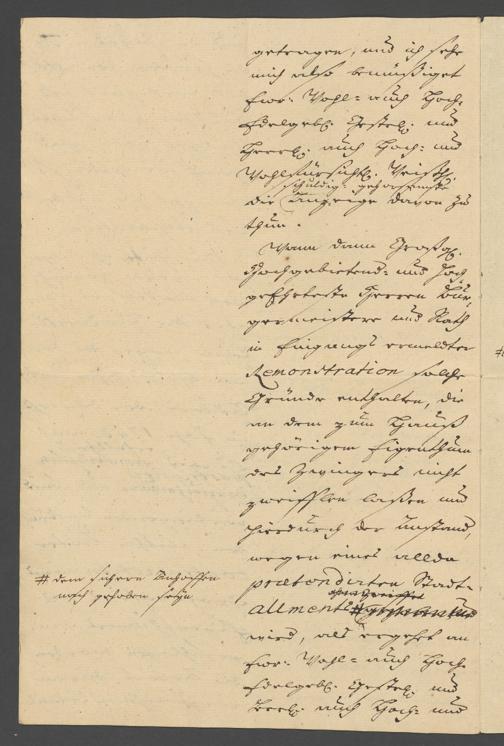 getragen, und ich sehe
mich also bemüßiget
Euer: Wohl= auch Hoch=
Edelgeb: Gestr: und
Herrl: auch Hoch= und
Wohlfürsichtl: Weißh:
schuldig= gehorsamste
die Anzeige davon zu
thun.
Wann dann Großg:
Hochgebietend= und Hoch
geEhrteste Herren Bur=
germeistere und Rath
in Eingangs ermeldter
Remonstration solche
Gründe enthalten, die
an dem zum Hauß
gehörigem Eigenthum
des Zwingers nicht
zweifflen laßen und
hierdurch der Anstand,
wegen eines allda
prætendirten Stadt=
allments #
wird, als ergehet an
Euer: Wohl= auch Hoch=
Edelgeb: Gestr: und
Herrl: auch Hoch= und
# dem sichern
nach gehoben seyn